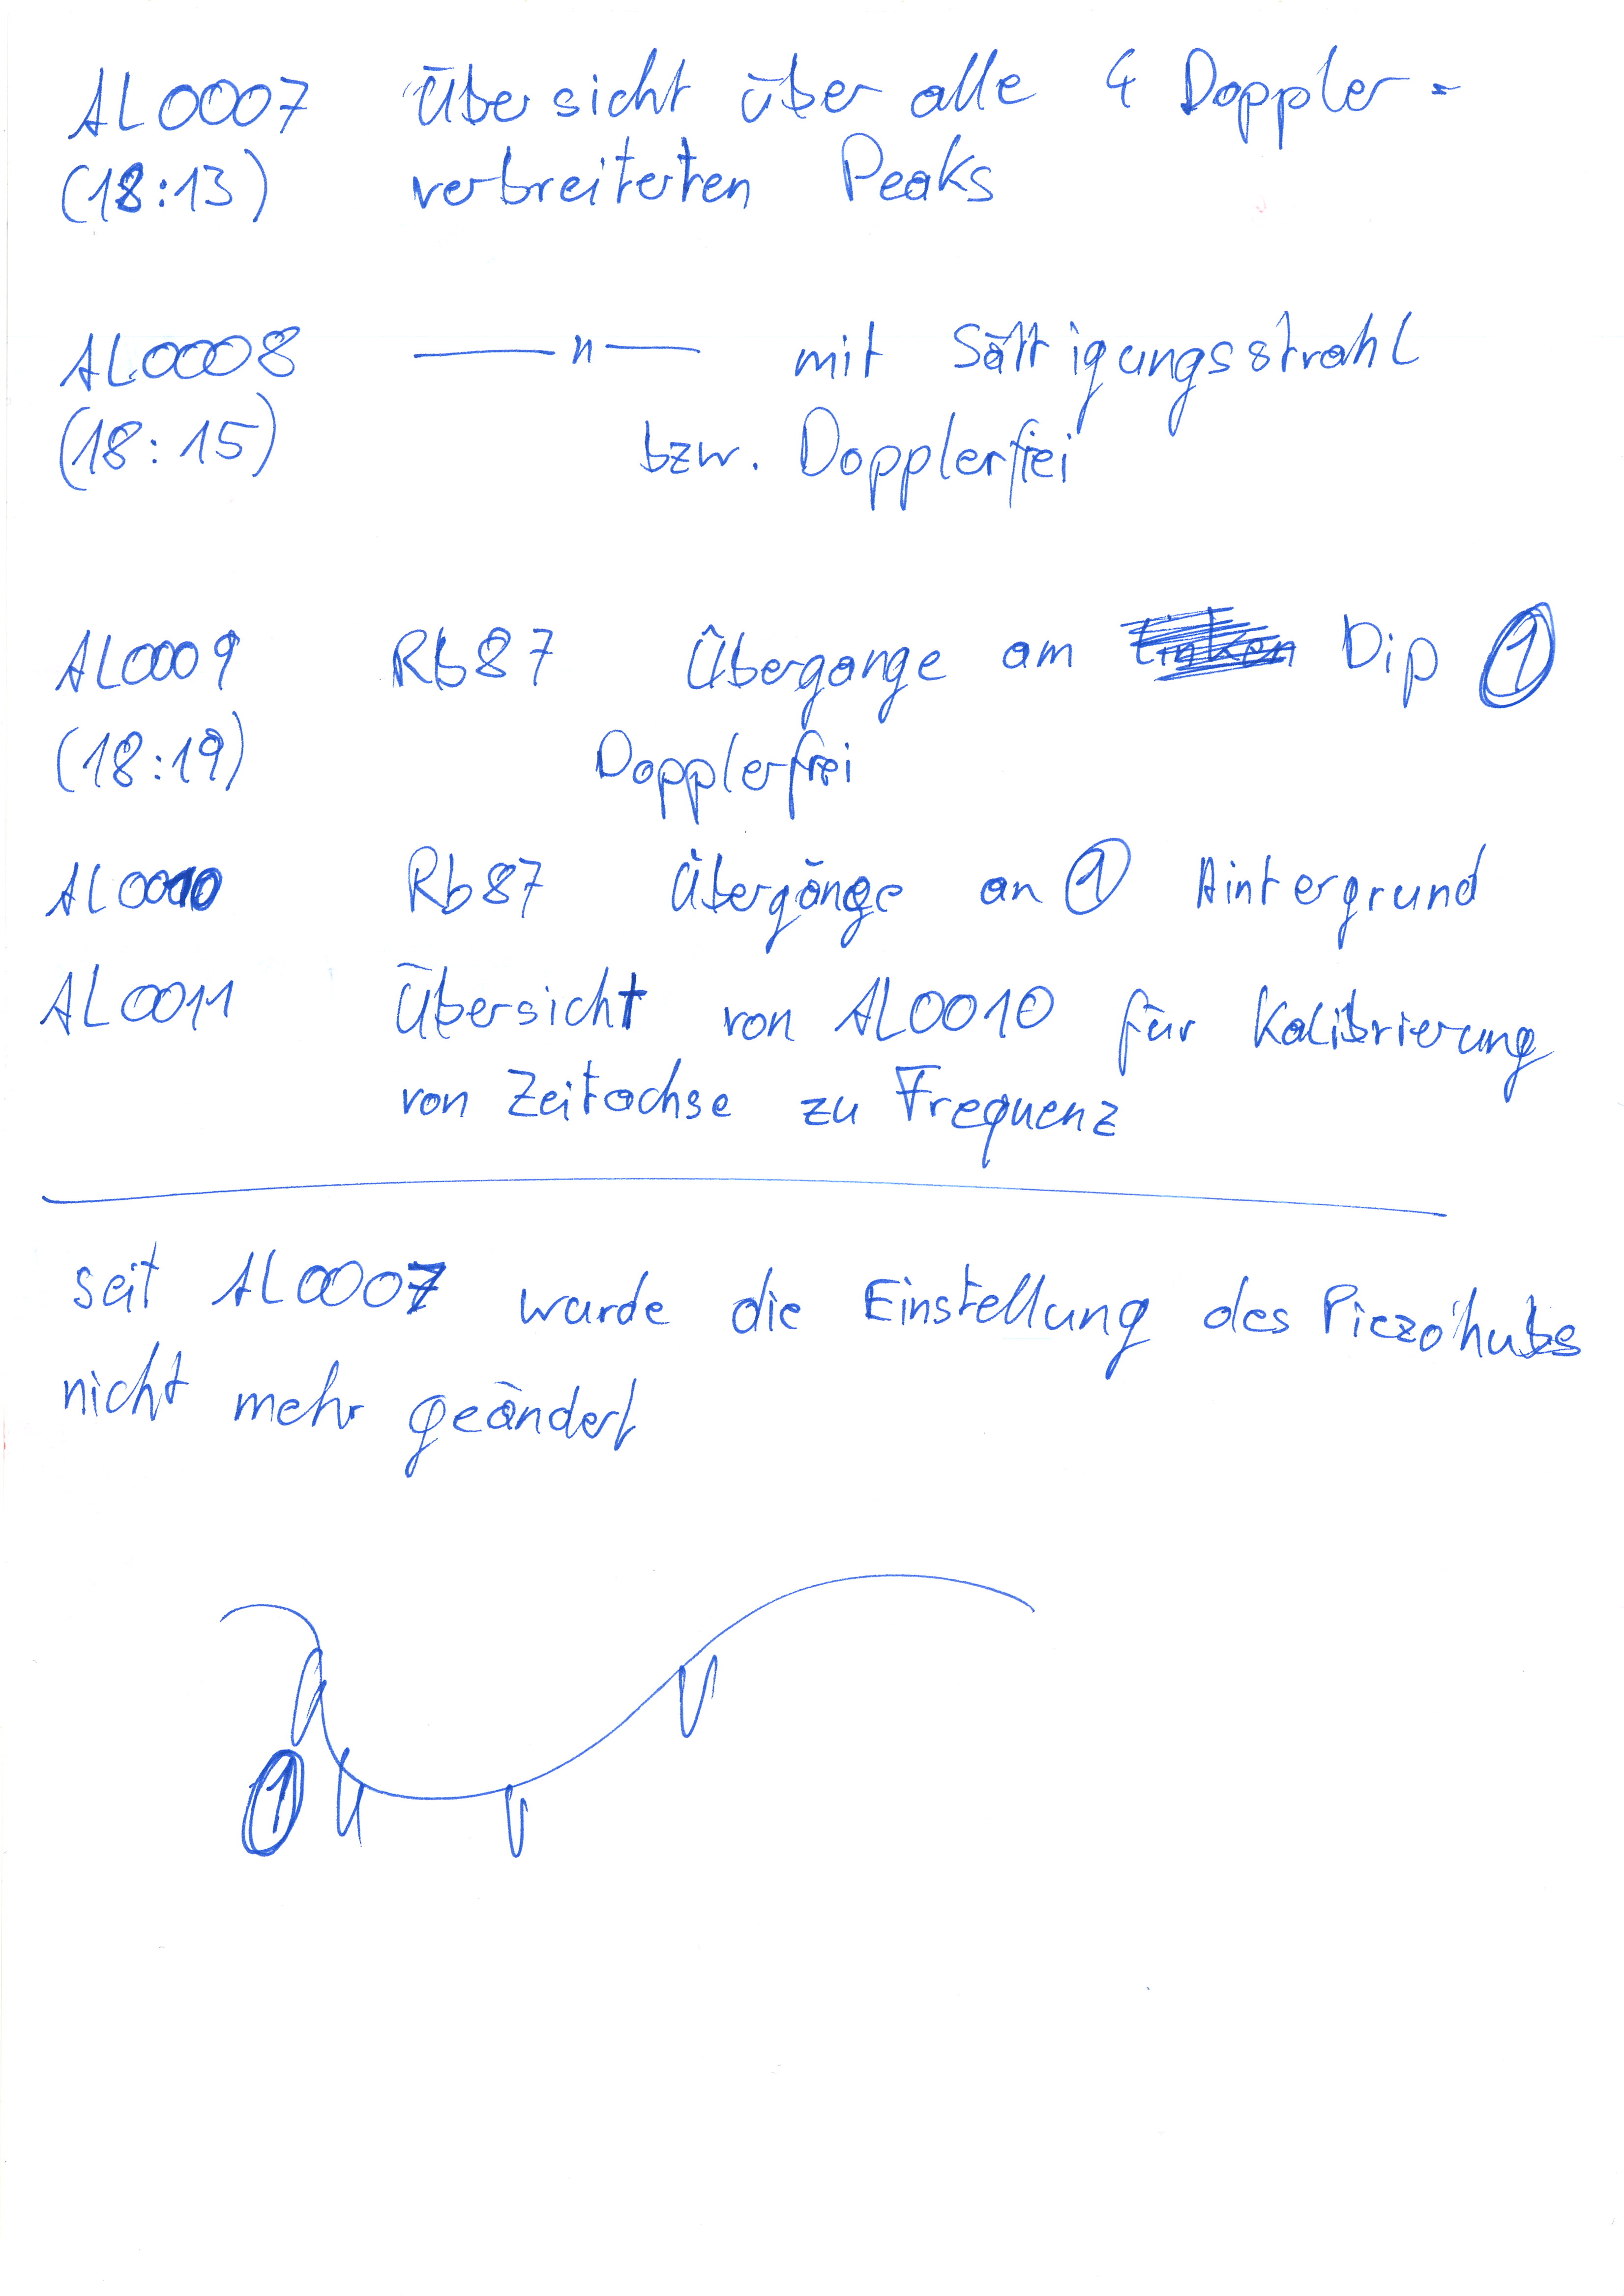 AL0007 Übersicht über alle 4 Doppler=
(18:13) verbreiterten Peaks
AL0008 —"— mit Sättigungsstrahl
(18:15) bzw. Dopplerfrei
AL0009 Rb87 Übergänge am Dip 1
(18:19) Dopplerfrei
AL0010 Rb87 Übergänge an 1 Hintergrund
AL0011 Übersicht von AL0010 für Kalibrierung
von Zeitachse zu Frequenz
seit AL0007 wurde die Einstellung des Piezohubs
nicht mehr geändert
1